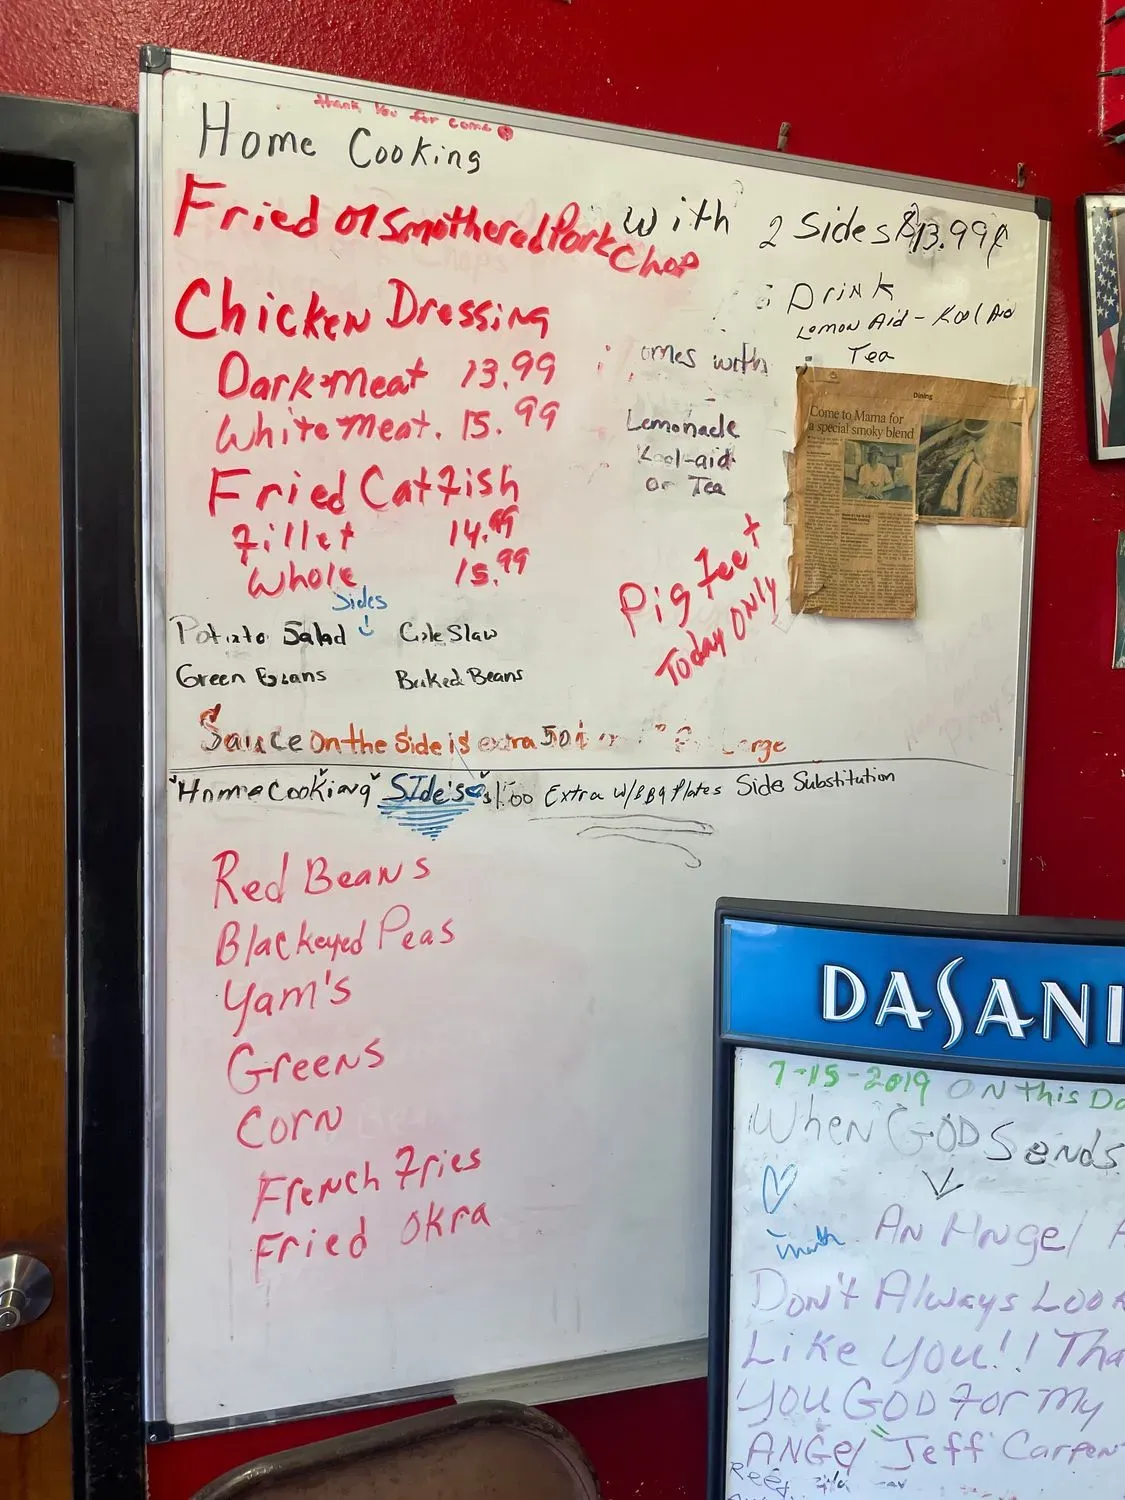 Thank You for come
Home Cooking
Fried or Smothered Pork Chop with 2 Sides $13.99¢
& Drink
Lemon Aid - Kool Aid
Tea
Chicken Dressing
Dark meat 13.99
White meat. 15.99
omes with
Lemonade
Kool-aid
or Tea
Fried Catfish
Fillet 14.99
Whole 15.99
Dining
Come to Mama for
a special smoky blend
Pig Feet
Today Only
Sides
Potato Salad Cole Slaw
Green Beans Baked Beans
Sauce On the Side is extra 50 Large
"Home Cooking" SIde's $1.00 Extra W/BBQ Plates Side Substitution
Red Beans
Blackeyed Peas
Yam's
Greens
Corn
French Fries
Fried Okra
DASANI
7-15-2019 ON this Da
When GOD Sends
An Angel A
Don't Always Look
Like You!! Tha
You GOD For My
ANGel Jeff Carpen